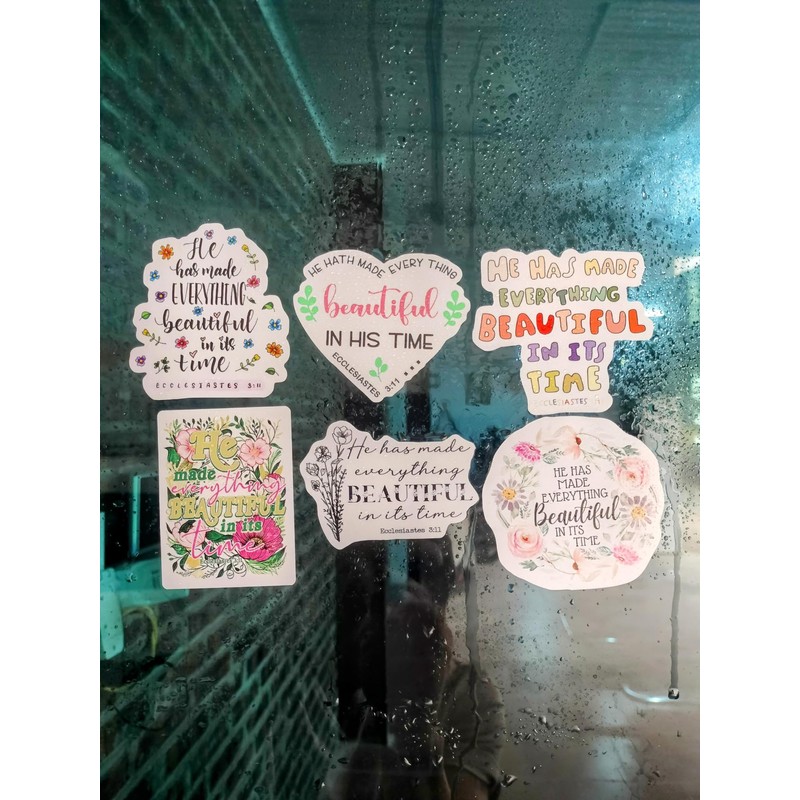 He
has made
EVERYTHING
beautiful
in its
time
ECCLESIASTES 3:11
HE HATH MADE EVERY THING
beautiful
IN HIS TIME
ECCLESIASTES 3:11
HE HAS MADE
EVERYTHING
BEAUTIFUL
IN ITS
TIME
ECCLESIASTES
He
made
everything
BEAUTIFUL
in its
time
He has made
everything
BEAUTIFUL
in its time
Ecclesiastes 3:11
HE HAS
MADE
EVERYTHING
Beautiful
IN ITS
TIME